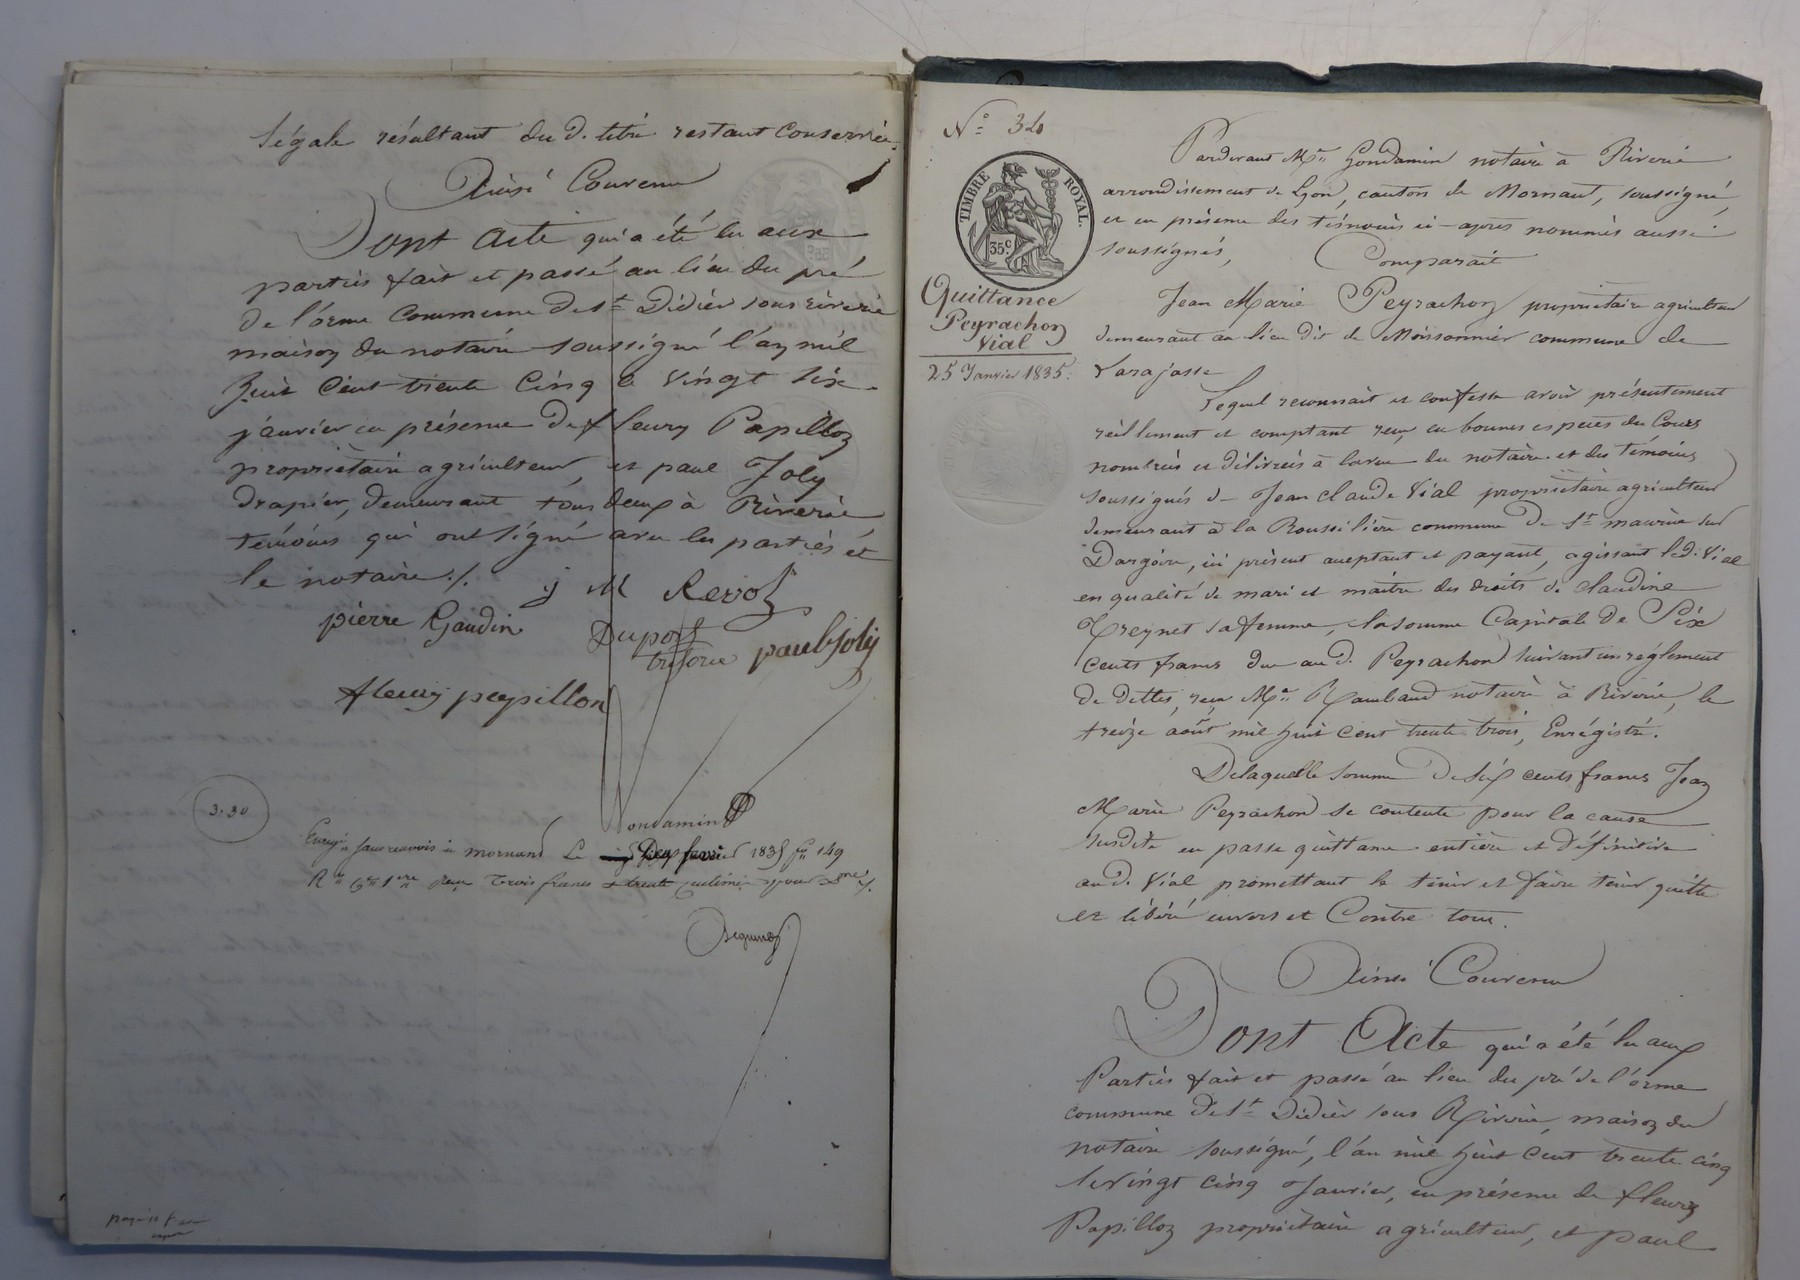 légale résultant du d. titre restant conservée.
Ainsi Convenu
Dont Acte qui a été lu aux
parties fait et passé au lieu du pré
de l'orme commune de St Didier sous riverie
maison du notaire soussigné l'an mil
huit cent trente cinq le vingt six
janvier en présence de fleury Papillon
propriétaire agriculteur, et paul Joly
drapier, demeurant tous deux à Riverie
témoins qui ont signé avec les parties et
le notaire ./.
j M Revol
pierre Gaudin
Duport
paul Joly
fleury papillon
3.30
Gondamin
Enregé sans renvois à mornand le deux février 1835 fo 149
Ro Ces 1ere reçu trois francs trente centimes pour Dme /.
N° 34
TIMBRE ROYAL.
35c
Quittance
Peyrachon
Vial
25 Janvier 1835.
Pardevant Me Gondamin notaire à Riverie
arrondissement de Lyon, canton de Mornant, soussigné,
et en présence des témoins ci-après nommés aussi
soussignés,
Comparait
Jean Marie Peyrachon propriétaire agriculteur
demeurant au lieu dit de Moissonnier commune de
Larajasse
Lequel reconnait et confesse avoir présentement
réellement et comptant reçu en bonnes espèces du Cours
nombrées et délivrées à la vue du notaire et des témoins
soussignés de Jean claude Vial propriétaire agriculteur
demeurant à la Roussilière commune de St maurice sur
Dargoire, ici présent acceptant et payant, agissant led. Vial
en qualité de mari et maitre des droits de claudine
Treynet sa femme, la somme Capitale de Six
cents francs due au d. Peyrachon suivant un réglement
de dettes, reçu Me Rambaud notaire à Riverie, le
treize août mil huit cent trente trois, Enrégistré.
De laquelle somme de six cents francs Jean
Marie Peyrachon se contente pour la cause
susdite en passe quittance entière et définitive
au d. Vial promettant le tenir et faire tenir quitte
et libéré envers et Contre tous.
Ainsi Convenu
Dont Acte qui a été lu aux
Parties fait et passé au lieu du pré de l'orme
commune de St Didier sous Riverie, maison du
notaire soussigné, l'an mil huit cent trente cinq
le vingt cinq Janvier, en présence de fleury
Papillon propriétaire agriculteur, et paul